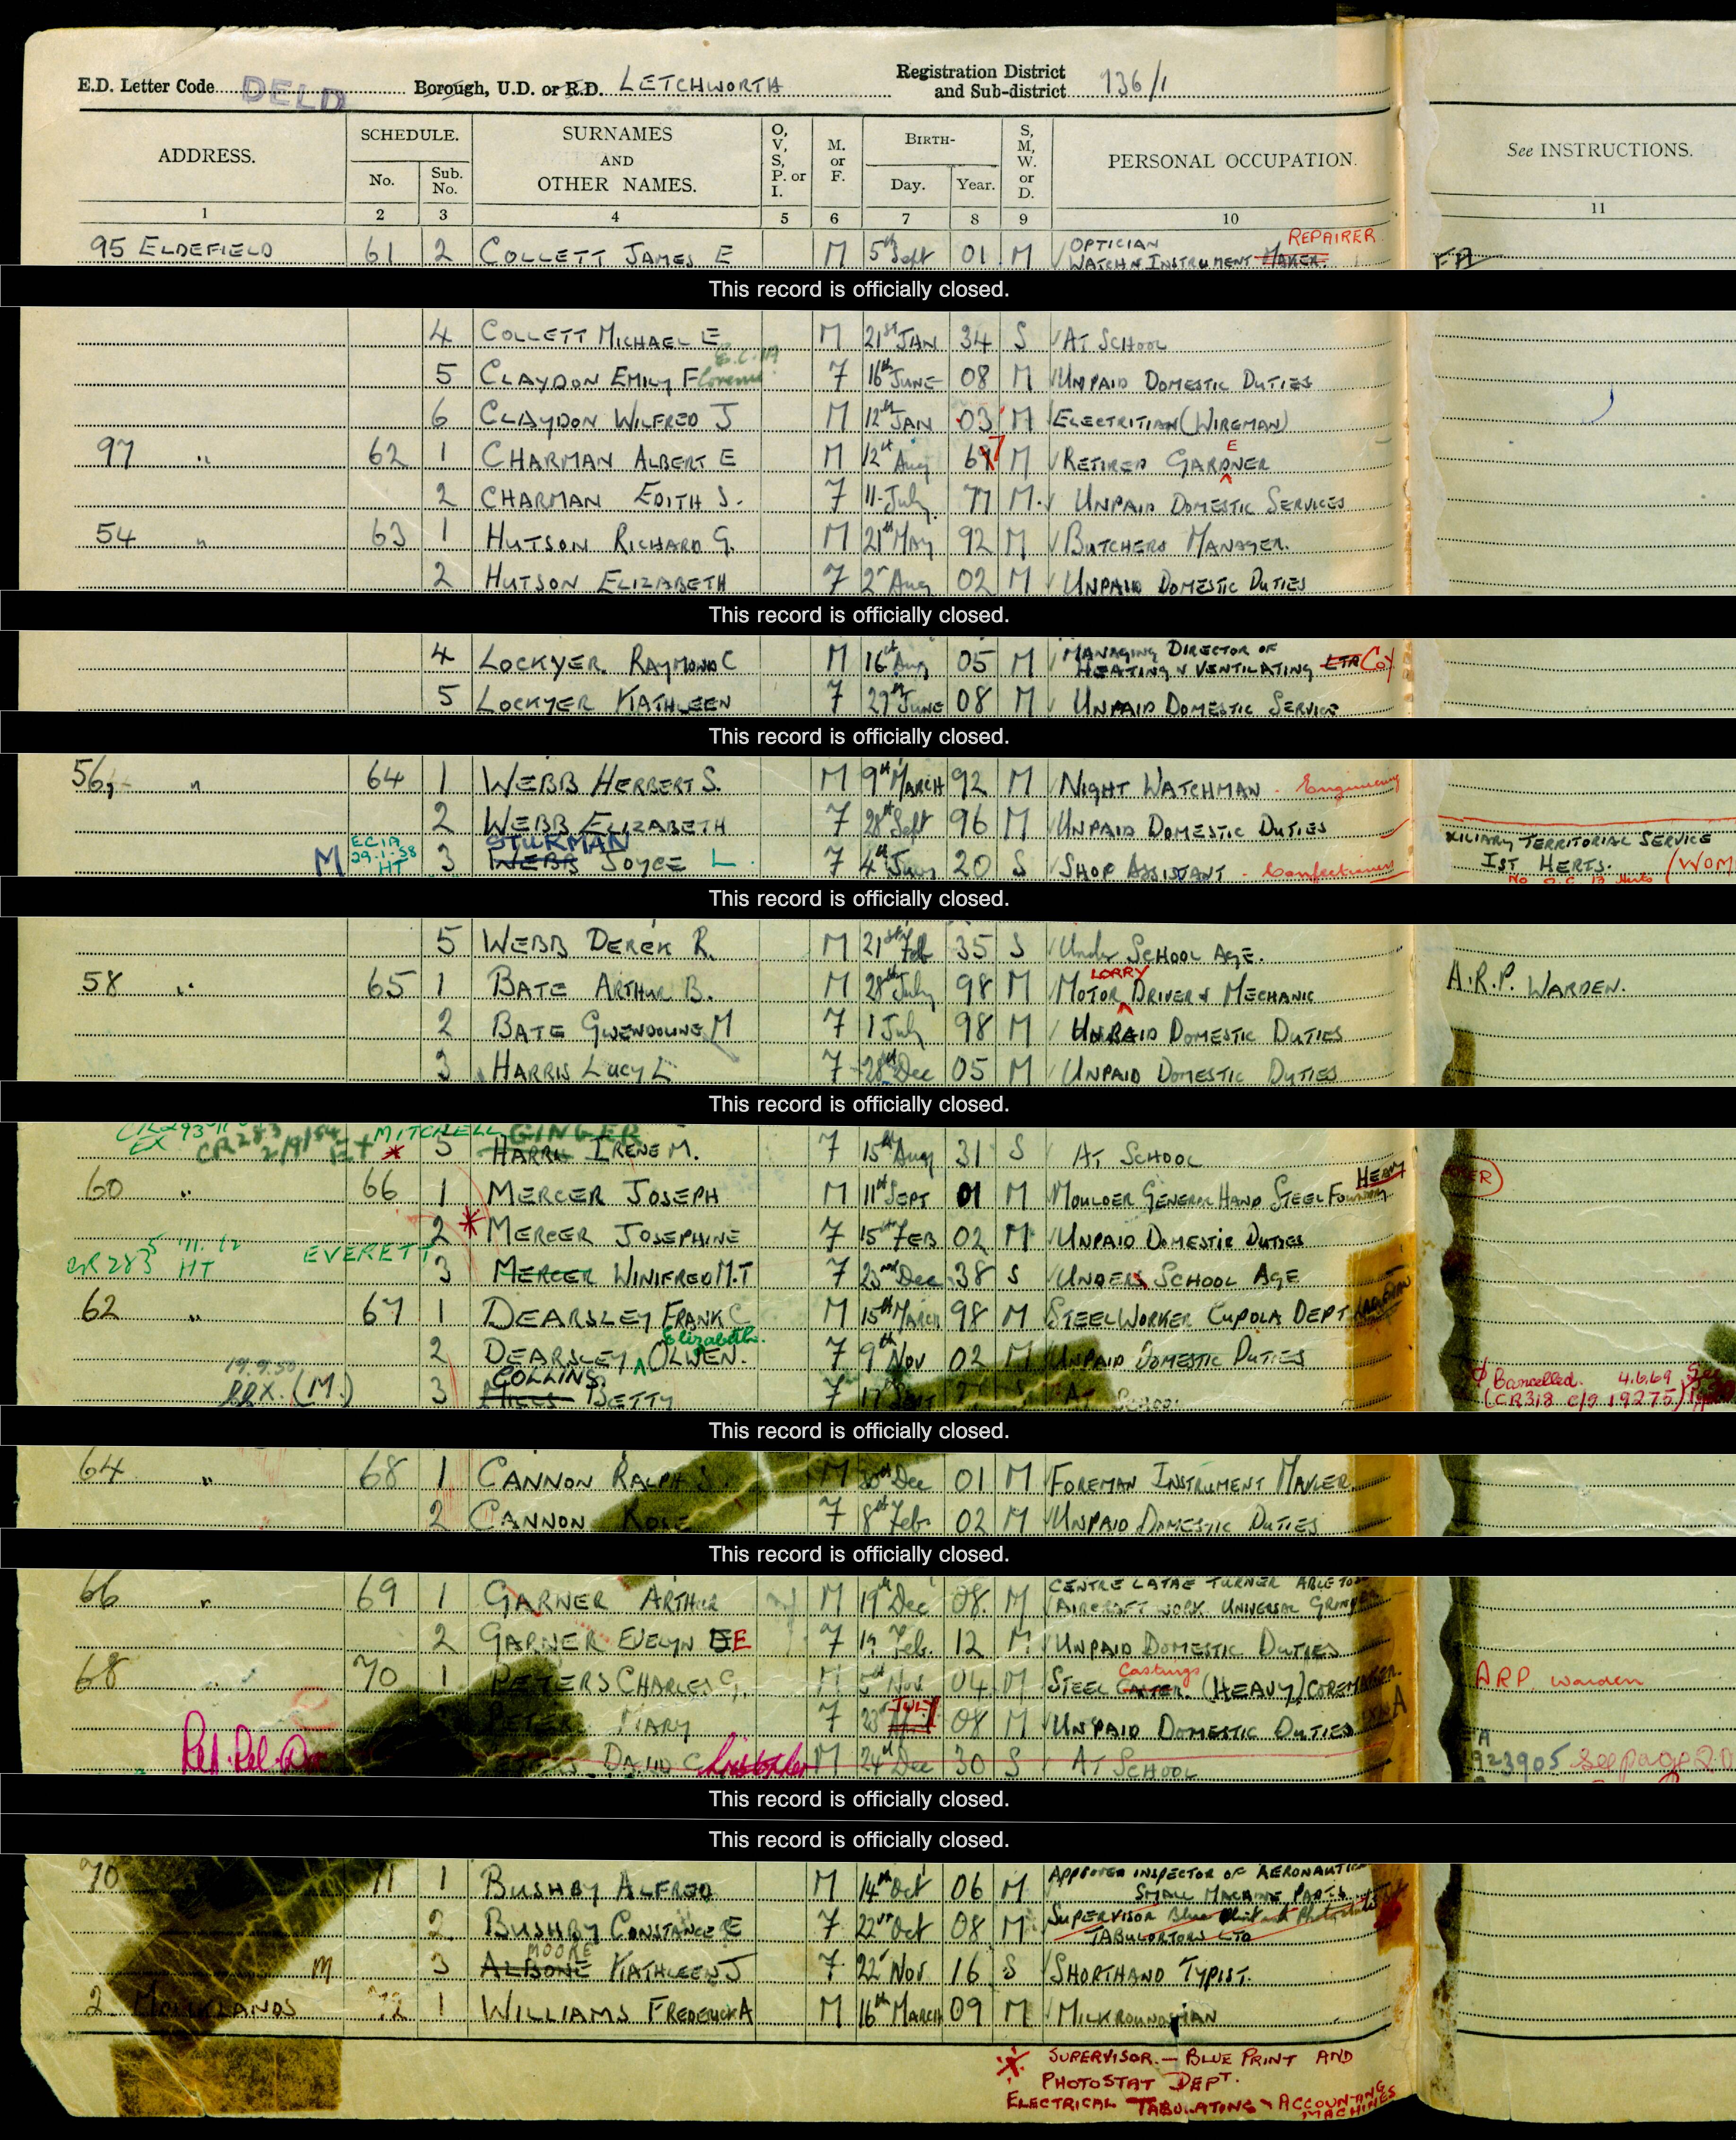 E.D. Letter Code DELD Borough, U.D. or R.D. LETCHWORTH Registration District and Sub-district 136/1
ADDRESS. SCHEDULE. No. Sub. No. SURNAMES AND OTHER NAMES. O, V, S, P. or I. M. or F. BIRTH- Day. Year. S, M, W. or D. PERSONAL OCCUPATION. See INSTRUCTIONS.
1 2 3 4 5 6 7 8 9 10 11
95 ELDEFIELD 61 2 COLLETT JAMES E M 5th Sept 01 M OPTICIAN WATCH & INSTRUMENT MAKER. REPAIRER
This record is officially closed.
4 COLLETT MICHAEL E M 21st JAN 34 S AT SCHOOL
5 CLAYDON EMILY Florence F 16th JUNE 08 M UNPAID DOMESTIC DUTIES
6 CLAYDON WILFRED J M 12th JAN 03 M ELECTRITIAN (WIREMAN)
97 " 62 1 CHARMAN ALBERT E M 12st Aug 67 M RETIRED GARDENER
2 CHARMAN EDITH S. F 11 July 77 M. UNPAID DOMESTIC SERVICES
54 " 63 1 HUTSON RICHARD G. M 21th May 92 M BUTCHERS MANAGER.
2 HUTSON ELIZABETH F 2 Aug 02 M UNPAID DOMESTIC DUTIES
This record is officially closed.
4 LOCKYER. RAYMOND C M 16th Aug 05 M MANAGING DIRECTOR OF HEATING & VENTILATING LTD Coy
5 LOCKYER KATHLEEN F 29th JUNE 08 M UNPAID DOMESTIC SERVICE
This record is officially closed.
56, " 64 1 WEBB HERBERT S. M 9th MARCH 92 M NIGHT WATCHMAN - Engineering
2 WEBB ELIZABETH F 28th Sept 96 M UNPAID DOMESTIC DUTIES
M ECIA 29.1.58 HT 3 WEBB STUKMAN JOYCE L. F 4th 20 S SHOP ASSISTANT - Confectioners XILIARY TERRITORIAL SERVICE 1ST HERTS. (WOM
This record is officially closed.
5 WEBB DEREK R. M 21st Feb 35 S Under SCHOOL AGE.
58 " 65 1 BATE ARTHUR B. M 28th July 98 M MOTOR LORRY DRIVER & MECHANIC A.R.P. WARDEN.
2 BATE GWENDOLINE M F 1 July 98 M UNPAID DOMESTIC DUTIES
3 HARRIS LUCY L F 28th Dec 05 M UNPAID DOMESTIC DUTIES
This record is officially closed.
EX CR283 2/9/54 EX MITCHELL GINGER
* 5 HARRIS IRENE M. F 15th Aug 31 S AT SCHOOL
60 " 66 1 MERCER JOSEPH M 11th SEPT 01 M MOULDER GENERAL HAND STEEL Foundry HEAVY
2 * MERCER JOSEPHINE F 15th FEB 02 M UNPAID DOMESTIC DUTIES
CR283 HT EVERETT 3 MERCER WINIFRED M.T F 23nd Dec 38 S UNDER SCHOOL AGE
62 " 67 1 DEARSLEY FRANK C M 15th March 98 M STEELWORKER CUPOLA DEPT
2 DEARSLEY Elizabeth OLWEN. F 9th Nov 02 M UNPAID DOMESTIC DUTIES
19.9.50 RRX. (M.) 3 COLLINS. BETTY F S AT SCHOOL Cancelled. 4.6.69 See (CR318 c/s 19275)
This record is officially closed.
64 " 68 1 CANNON RALPH S. M Dec 01 M FOREMAN INSTRUMENT MAKER.
2 CANNON ROSE F 8th Feb 02 M UNPAID DOMESTIC DUTIES
This record is officially closed.
66 " 69 1 GARNER ARTHUR M 19th Dec 08. M CENTRE LATHE TURNER ABLE TO AIRCRAFT WORK UNIVERSAL GRINDER
2 GARNER EVELYN E F 19 Feb. 12 M UNPAID DOMESTIC DUTIES
68 " 70 1 PETERS CHARLES G. M Nov 04 M STEEL Castings (HEAVY) COREMAKER. ARP Warden
PETERS MARY F 23 JULY 08 M UNPAID DOMESTIC DUTIES
DAVID Christopher M 24th Dec 30 S AT SCHOOL 923905 See page
This record is officially closed.
This record is officially closed.
70 71 1 BUSHBY ALFRED M 14th Oct 06 M APPROVED INSPECTOR OF AERONAUTICAL SMALL MACHINE PARTS
2 BUSHBY CONSTANCE E F 22nd Oct 08 M SUPERVISOR Blue Print and Photostats TABULATORS LTD
M 3 ALBONE MOORE KATHLEEN J F 22 Nov 16 S SHORTHAND TYPIST.
2 MONKLANDS 72 1 WILLIAMS FREDERICK A M 16th March 09 M MILKROUNDSMAN
* SUPERVISOR. - BLUE PRINT AND
PHOTOSTAT DEPT.
ELECTRICAL TABULATING & ACCOUNTING MACHINES